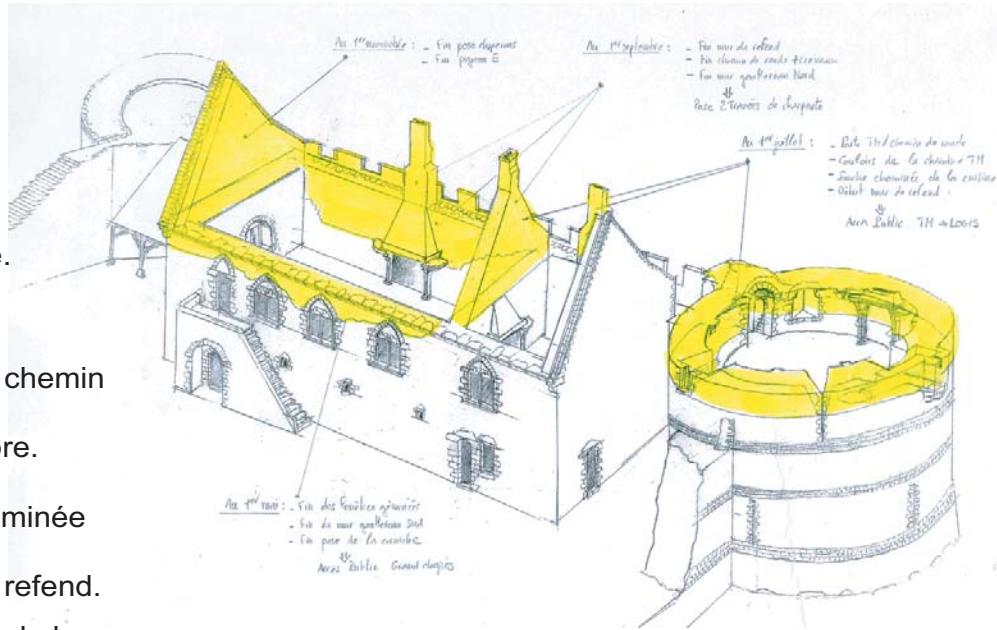 e.
chemin
re.
minée
refend.
Au 1er novembre : - Fin pose chaperons
- Fin pignon E
Au 1er septembre : - Fin mur de refend
- Fin chemin de ronde + créneaux
- Fin mur gouttereau Nord
⇓
Pose 2 Travées de charpente
Au 1er juillet : - Porte TM / chemin de ronde
- Couloirs de la chambre TM
- Souche cheminée de la cuisine
- Début mur de refend :
⇓
Accès Public TM → LOGIS
Au 1er mai : - Fin des fenêtres géminées
- Fin du mur gouttereau Sud
- Fin pose de la corniche
⇓
Accès Public Grand